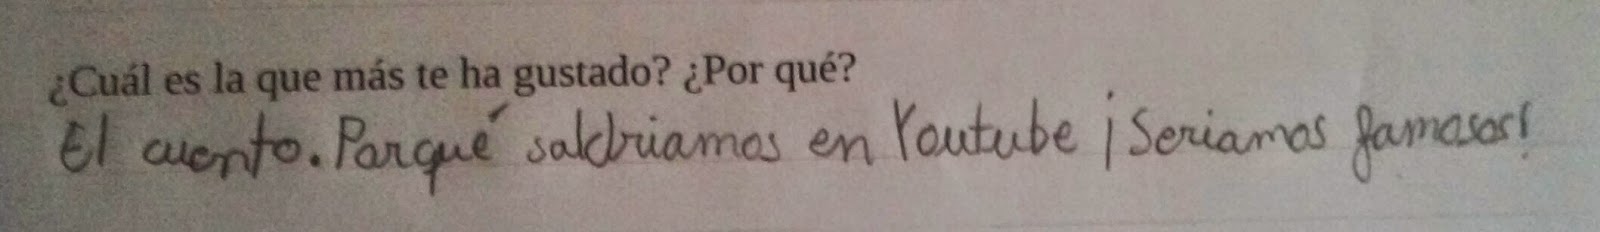 ¿Cuál es la que más te ha gustado? ¿Por qué?
El cuento. Porqué saldriamos en Youtube ¡Seriamos famosos!